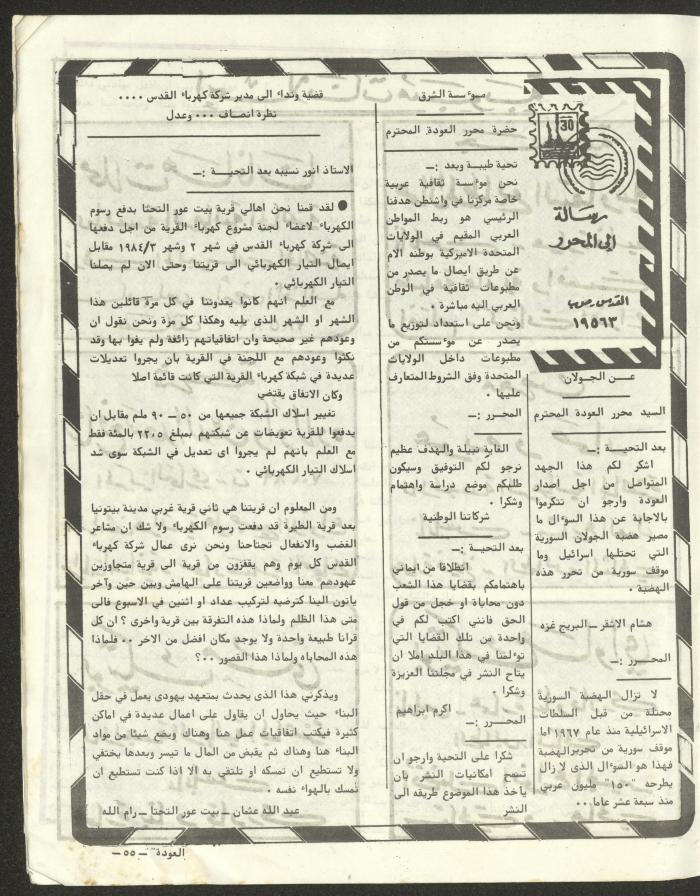 رسالة
الى المحرر
القدس ص.ب
١٩٥٦٣
30
عن الجولان
السيد محرر العودة المحترم
بعد التحية :ــ
اشكر لكم هذا الجهد
المتواصل من اجل اصدار
العودة وارجو ان تتكرموا
بالاجابة عن هذا السؤال ما
مصير هضبة الجولان السورية
التي تحتلها اسرائيل وما
موقف سورية من تحرر هذه
الهضبة .
هشام الاشقر ــ البريج غزه
المحـــرر :ــ
لا تزال الهضبة السورية
محتلة من قبل السلطات
الاسرائيلية منذ عام ١٩٦٧ اما
موقف سورية من تحرير الهضبة
فهذا هو السؤال الذى لا زال
يطرحه "١٥٠" مليون عربي
منذ سبعة عشر عاما ..
مؤسسة الشرق
حضرة محرر العودة المحترم
تحية طيبة وبعد :ــ
نحن مؤسسة ثقافية عربية
خاصة مركزنا في واشنطن هدفنا
الرئيسي هو ربط المواطن
العربي المقيم في الولايات
المتحدة الاميركية بوطنه الام
عن طريق ايصال ما يصدر من
مطبوعات ثقافية في الوطن
العربي اليه مباشرة .
ونحن على استعداد لتوزيع ما
يصدر عن مؤسستكم من
مطبوعات داخل الولايات
المتحدة وفق الشروط المتعارف
عليها .
المحرر :ــ
الغاية نبيلة والهدف عظيم
نرجو لكم التوفيق وسيكون
طلبكم موضع دراسة واهتمام
وشكرا .
شركاتنا الوطنية
بعد التحية :ــ
انطلاقا من ايماني
باهتمامكم بقضايا هذا الشعب
دون محاباة او خجل من قول
الحق فانني اكتب لكم في
واحدة من تلك القضايا التي
تؤلمنا في هذا البلد املا ان
يتاح النشر في مجلتنا العزيزة
وشكرا .
اكرم ابراهيم
المحـــرر :ــ
شكرا على التحية وارجو ان
تسمح امكانيات النشر بان
يأخذ هذا الموضوع طريقه الى
النشر
قضية ونداء الى مدير شركة كهرباء القدس ....
نظرة انصاف ... وعدل
الاستاذ انور نسيبه بعد التحيـــة :ــ
● لقد قمنا نحن اهالي قرية بيت عور التحتا بدفع رسوم
الكهرباء لاعضاء لجنة مشروع كهرباء القرية من اجل دفعها
الى شركة كهرباء القدس في شهر ٢ وشهر ١٩٨٤/٣ مقابل
ايصال التيار الكهربائي الى قريتنا وحتى الان لم يصلنا
التيار الكهربائي .
مع العلم انهم كانوا يعدوننا في كل مرة قائلين هذا
الشهر او الشهر الذى يليه وهكذا كل مرة ونحن نقول ان
وعودهم غير صحيحة وان اتفاقياتهم زائغة ولم يفوا بها وقد
نكثوا وعودهم مع اللجنة في القرية بان يجروا تعديلات
عديدة في شبكة كهرباء القرية التي كانت قائمة اصلا
وكان الاتفاق يقتضي
تغيير اسلاك الشبكة جميعها من ٥٠ ــ ٩٠ ملم مقابل ان
يدفعوا للقرية تعويضات عن شبكتهم بمبلغ ٢٢٫٥ بالمئة فقط
مع العلم بانهم لم يجروا اى تعديل في الشبكة سوى شد
اسلاك التيار الكهربائي .
ومن المعلوم ان قريتنا هي ثاني قرية غربي مدينة بيتونيا
بعد قرية الطيرة قد دفعت رسوم الكهرباء ولا شك ان مشاعر
الغضب والانفعال تجتاحنا ونحن نرى عمال شركة كهرباء
القدس كل يوم وهم يقفزون من قرية الى قرية متجاوزين
عهودهم معنا وواضعين قريتنا على الهامش وبين حين وآخر
ياتون الينا كترضيه لتركيب عداد او اثنين في الاسبوع فالى
متى هذا الظلم ولماذا هذه التفرقة بين قرية واخرى ؟ ان كل
قرانا طبيعة واحدة ولا يوجد مكان افضل من الاخر .. فلماذا
هذه المحاباه ولماذا هذا القصور ..؟
ويذكرني هذا الذى يحدث بمتعهد يهودى يعمل في حقل
البناء حيث يحاول ان يقاول على اعمال عديدة في اماكن
كثيرة فيكتب اتفاقيات عمل هنا وهناك ويضع شيئا من مواد
البناء هنا وهناك ثم يقبض من المال ما تيسر وبعدها يختفي
ولا تستطيع ان تمسكه او تلتقي به الا اذا كنت تستطيع ان
تمسك بالهواء نفسه .
عبد الله عثمان ــ بيت عور التحتا ــ رام الله
العودة ــ ٥٥ ــ